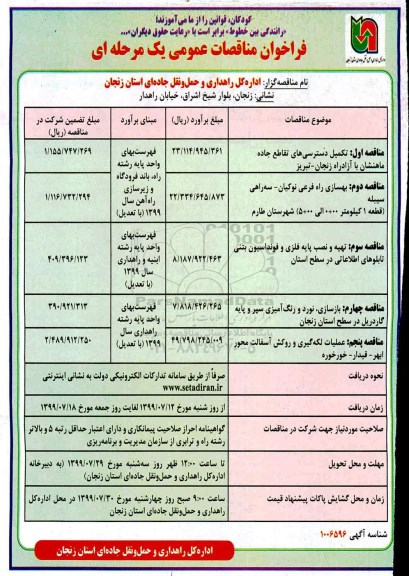 کودکان، قوانین را از ما می‌آموزند!
«رانندگی بین خطوط» برابر است با «رعایت حقوق دیگران»...
فراخوان مناقصات عمومی یک مرحله ای
نام مناقصه‌گزار: اداره‌کل راهداری و حمل‌ونقل جاده‌ای استان زنجان
نشانی: زنجان، بلوار شیخ اشراق، خیابان راهدار
موضوع مناقصات
مبلغ برآورد (ریال)
مبنای برآورد
مبلغ تضمین شرکت در مناقصه (ریال)
مناقصه اول: تکمیل دسترسی‌های تقاطع جاده
ماهنشان با آزادراه زنجان-تبریز
۲۳/۱۱۴/۹۴۵/۳۶۱
فهرست‌بهای
واحد پایه رشته
راه، باند فرودگاه
و زیرسازی
راه‌آهن سال
۱۳۹۹ (با تعدیل)
۱/۱۵۵/۷۴۷/۲۶۹
مناقصه دوم: بهسازی راه فرعی نوکیان- سه‌راهی
سیبله
(قطعه ۱ کیلومتر ۰۰۰+۰ الی ۰۰۰+۵) شهرستان طارم
۲۲/۳۳۴/۶۴۵/۸۷۳
۱/۱۱۶/۷۳۲/۲۹۴
مناقصه سوم: تهیه و نصب پایه فلزی و فونداسیون بتنی
تابلوهای اطلاعاتی در سطح استان
۸/۱۸۷/۹۲۲/۴۶۳
فهرست‌بهای
واحد پایه رشته
ابنیه و راهداری
سال ۱۳۹۹
(با تعدیل)
۴۰۹/۳۹۶/۱۲۳
مناقصه چهارم: بازسازی، نورد و رنگ‌آمیزی سپر و پایه
گاردریل در سطح استان زنجان
۷/۸۱۸/۴۲۶/۲۶۵
فهرست‌بهای
واحد پایه رشته
راهداری سال
۱۳۹۹ (با تعدیل)
۳۹۰/۹۲۱/۳۱۳
مناقصه پنجم: عملیات لکه‌گیری و روکش آسفالت محور
ابهر- قیدار- خورخوره
۴۹/۷۹۸/۲۴۵/۰۰۹
۲/۴۸۹/۹۱۲/۲۵۰
نحوه دریافت
صرفاً از طریق سامانه تدارکات الکترونیکی دولت به نشانی اینترنتی
www.setadiran.ir
زمان دریافت
از روز شنبه مورخ ۱۳۹۹/۰۷/۱۲ لغایت روز جمعه مورخ ۱۳۹۹/۰۷/۱۸
صلاحیت موردنیاز جهت شرکت در مناقصات
گواهینامه احراز صلاحیت پیمانکاری و دارای اعتبار حداقل رتبه ۵ و بالاتر
رشته راه و ترابری از سازمان مدیریت و برنامه‌ریزی
مهلت و محل تحویل
تا ساعت ۱۲:۰۰ ظهر روز سه‌شنبه مورخ ۱۳۹۹/۰۷/۲۹ (به دبیرخانه
اداره‌کل راهداری و حمل‌ونقل جاده‌ای استان زنجان)
زمان و محل گشایش پاکات پیشنهاد قیمت
ساعت ۹:۰۰ صبح روز چهارشنبه مورخ ۱۳۹۹/۰۷/۳۰ در محل اداره‌کل
راهداری و حمل‌ونقل جاده‌ای استان زنجان)
شناسه آگهی ۱۰۰۶۵۹۶
اداره‌کل راهداری و حمل‌ونقل جاده‌ای استان زنجان